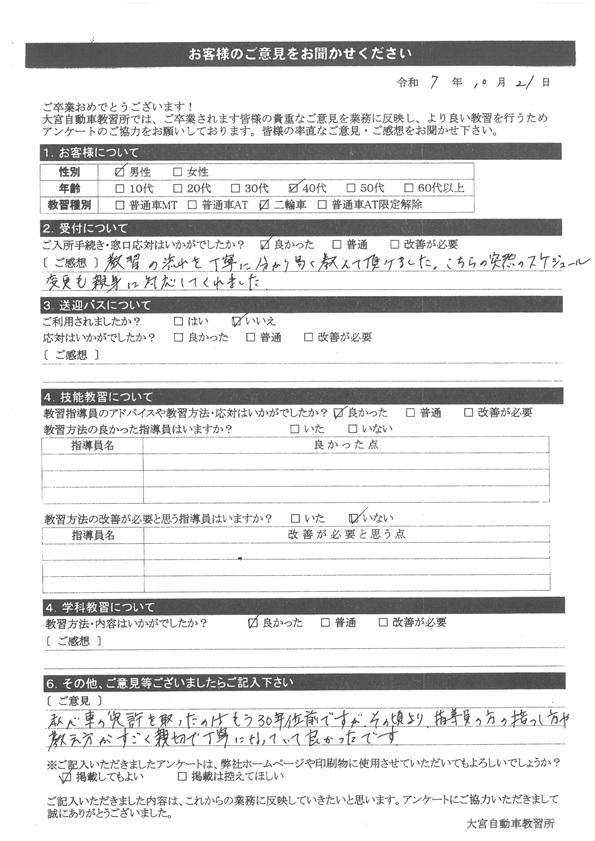 お客様のご意見をお聞かせください
令和 7 年 10 月 21 日
ご卒業おめでとうございます！
大宮自動車教習所では、ご卒業されます皆様の貴重なご意見を業務に反映し、より良い教習を行うため
アンケートのご協力をお願いしております。皆様の率直なご意見・ご感想をお聞かせ下さい。
1. お客様について
性別 ☑男性 □女性
年齢 □10代 □20代 □30代 ☑40代 □50代 □60代以上
教習種別 □普通車MT □普通車AT ☑二輪車 □普通車AT限定解除
2. 受付について
ご入所手続き・窓口応対はいかがでしたか？ ☑良かった □普通 □改善が必要
〔 ご感想 〕教習の流れを丁寧に分かり易く教えて頂けました。こちらの突然のスケジュール
変更も親身に対応してくれました
3. 送迎バスについて
ご利用されましたか？ □はい ☑いいえ
応対はいかがでしたか？ □良かった □普通 □改善が必要
〔 ご感想 〕
4. 技能教習について
教習指導員のアドバイスや教習方法・応対はいかがでしたか？ ☑良かった □普通 □改善が必要
教習方法の良かった指導員はいますか？ □いた □いない
指導員名 良かった点
教習方法の改善が必要と思う指導員はいますか？ □いた ☑いない
指導員名 改善が必要と思う点
4. 学科教習について
教習方法・内容はいかがでしたか？ ☑良かった □普通 □改善が必要
〔 ご感想 〕
6. その他、ご意見等ございましたらご記入下さい
〔 ご意見 〕
私が車の免許を取ったのはもう30年位前ですが、その頃より、指導員の方の接っし方や
教え方がすごく親切で丁寧になっていて良かったです
※ご記入いただきましたアンケートは、弊社ホームページや印刷物に使用させていただいてもよろしいでしょうか？
☑掲載してもよい □掲載は控えてほしい
ご記入いただきました内容は、これからの業務に反映していきたいと思います。アンケートにご協力いただきまして
誠にありがとうございました。
大宮自動車教習所